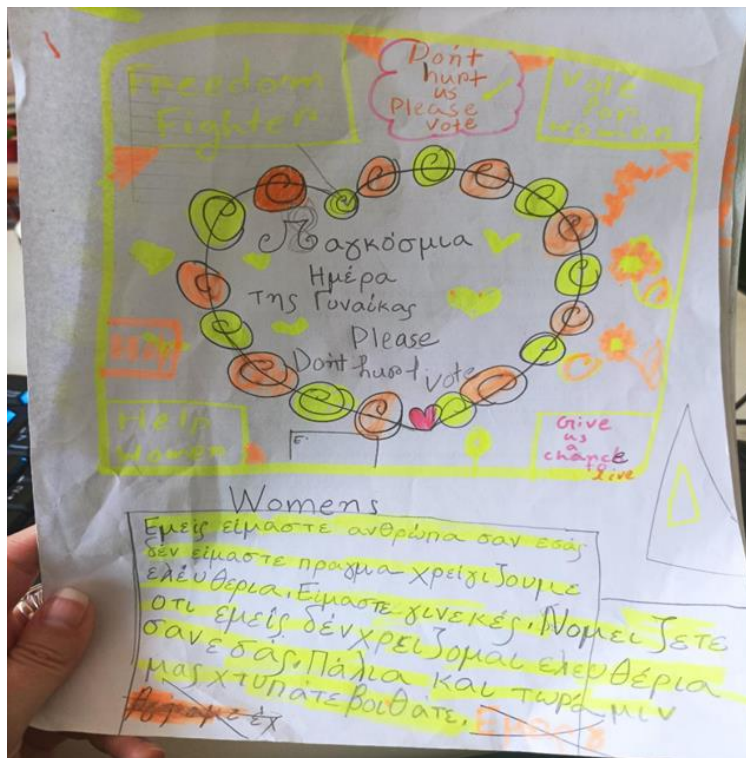 Freedom
Fighter
Don't
hurt
us
Please
vote
Vote
for
women
Παγκόσμια
Ημέρα
Της Γυναίκας
Please
Don't hurt vote
Help
Women
Give
us
a
chance
to
live
Womens
Εμείς είμαστε ανθρώπα σαν εσάς
δέν είμαστε πραγμα χρείγιζουμε
ελέυθερια. Είμαστε γινεκές. Νομειζετε
οτι εμείς δέν χρειζομαι ελευθέρια
σαν εσάς. Πάλια και τωρα μιν
μας χτυπάτε βοιθάτε.